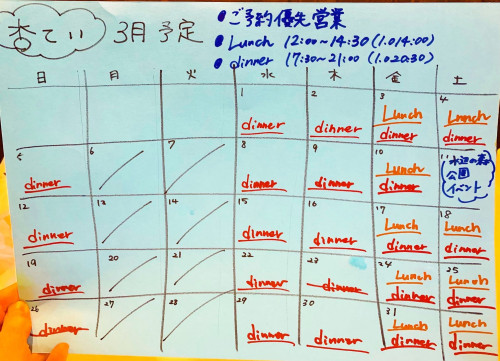 杏てぃ 3月 予定
● ご予約優先営業
● Lunch 12:00~14:30 (l.o14:00)
● dinner 17:30~21:00 (l.o20:30)
日 月 火 水 木 金 土
1 2 3 4
Lunch Lunch
dinner dinner dinner dinner
5 6 7 8 9 10
Lunch 水辺の森
公園
イベント
dinner dinner dinner dinner
12 13 14 15 16 17 18
Lunch Lunch
dinner dinner dinner dinner dinner
19 20 21 22 23 24 25
Lunch Lunch
dinner dinner dinner dinner dinner
26 27 28 29 30 31
Lunch Lunch
dinner dinner dinner dinner dinner